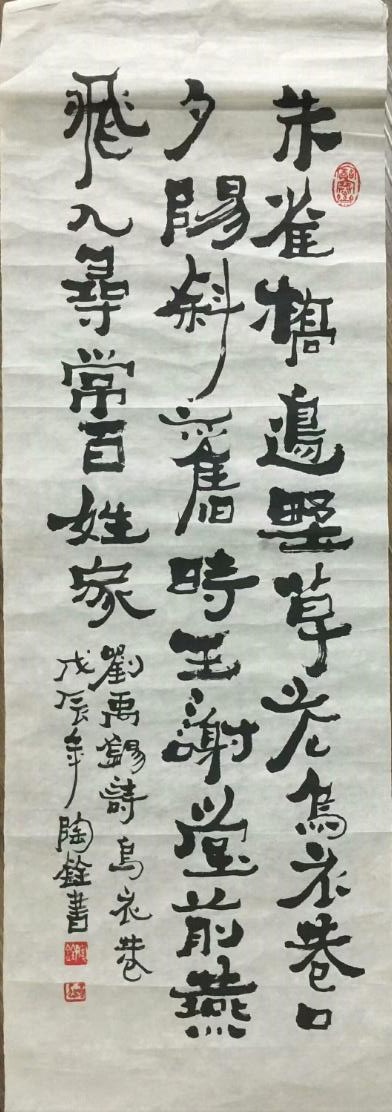 朱雀橋邊野草花烏衣巷口
夕陽斜舊時王謝堂前燕
飛入尋常百姓家
劉禹錫詩烏衣巷
戊辰年陶銓書